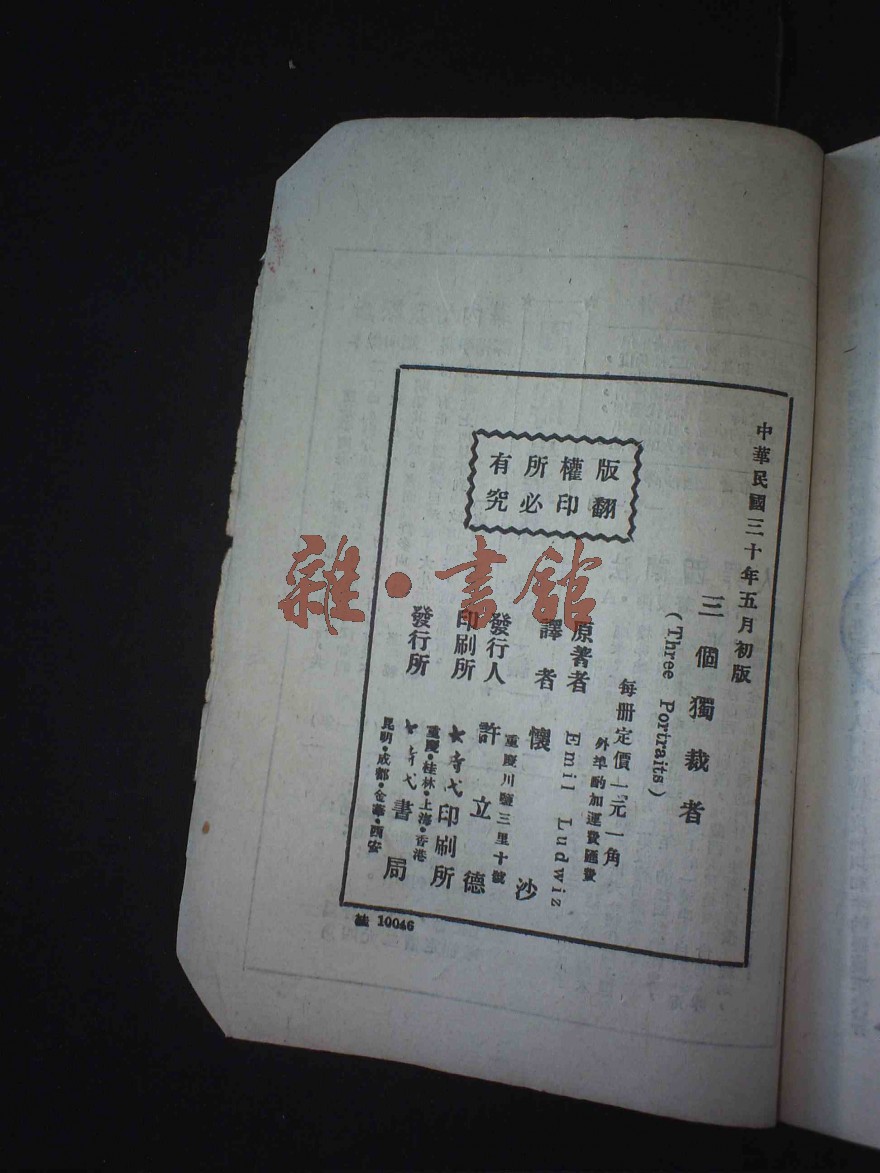 中華民國三十年五月初版
三個獨裁者
(Three Portraits)
每册定價一元一角
外埠酌加運費匯費
原著者 Emil Ludwiz
譯者 懷沙
發行人 許立德
重慶川鹽三里十號
印刷所 印刷所
發行所 書局
重慶·桂林·上海·香港
昆明·成都·金華·西安
版權所有
翻印必究
桂 10046
雜·書館